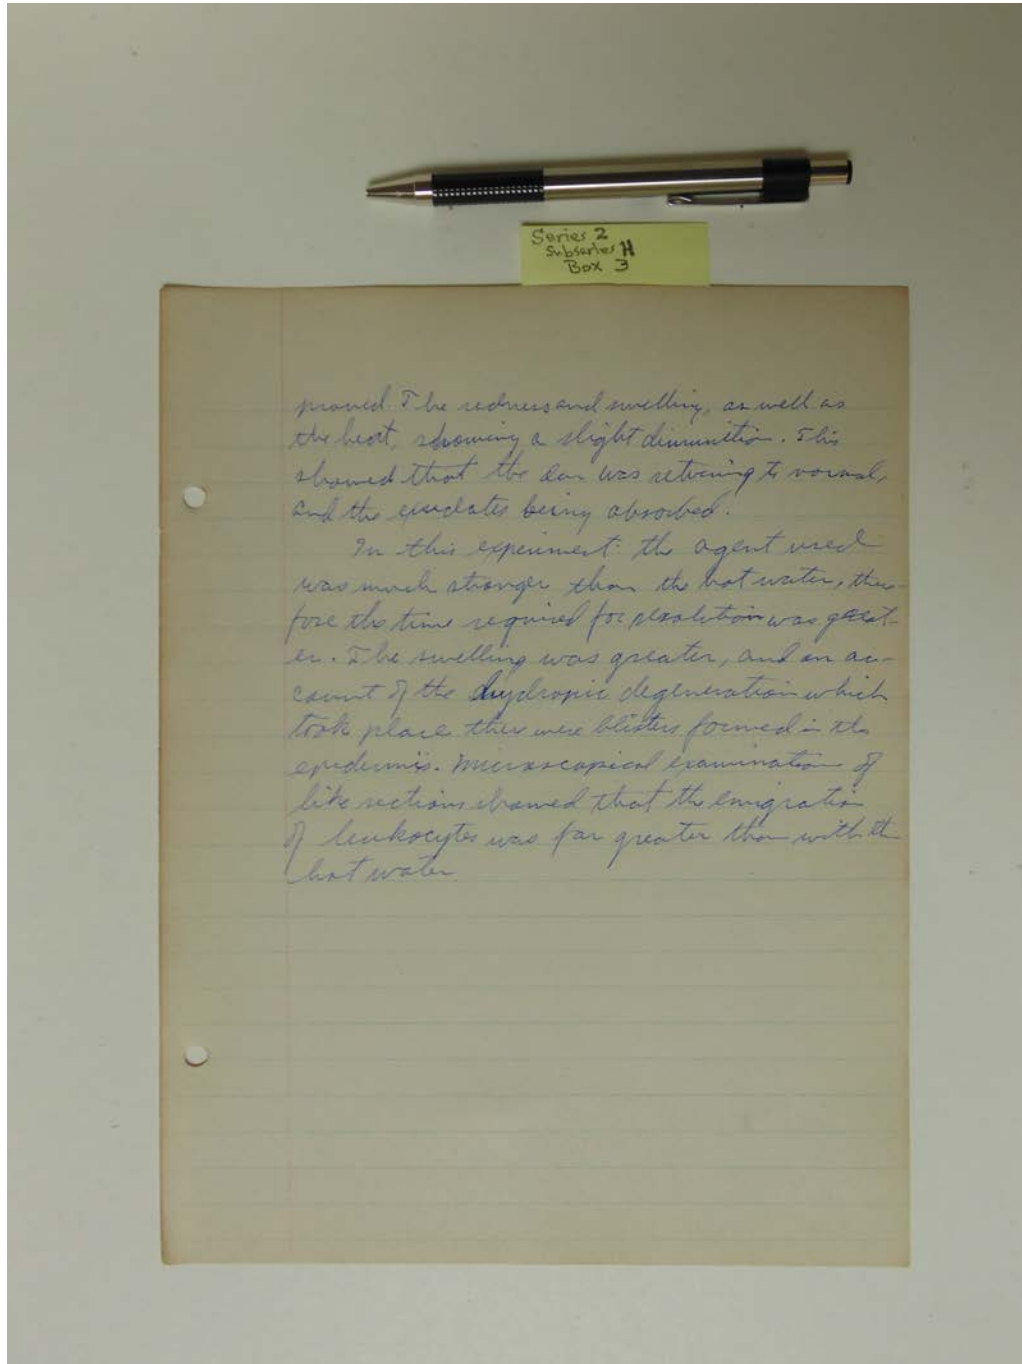 Series 2
Subseries H
Box 3
proved. The redness and swelling, as well as
the heat, showing a slight dimunition. This
showed that the ear was returing to normal,
and the exudates being absorbed.
In this experiment the agent used
was much stronger than the hot water, there-
fore the time required for resolution was great-
er. The swelling was greater, and on ac-
count of the hydropic degeneration which
took place there were blisters formed in the
epidermis. Microscopical examination of
like sections showed that the emigration
of leukocytes was far greater than with the
hot water